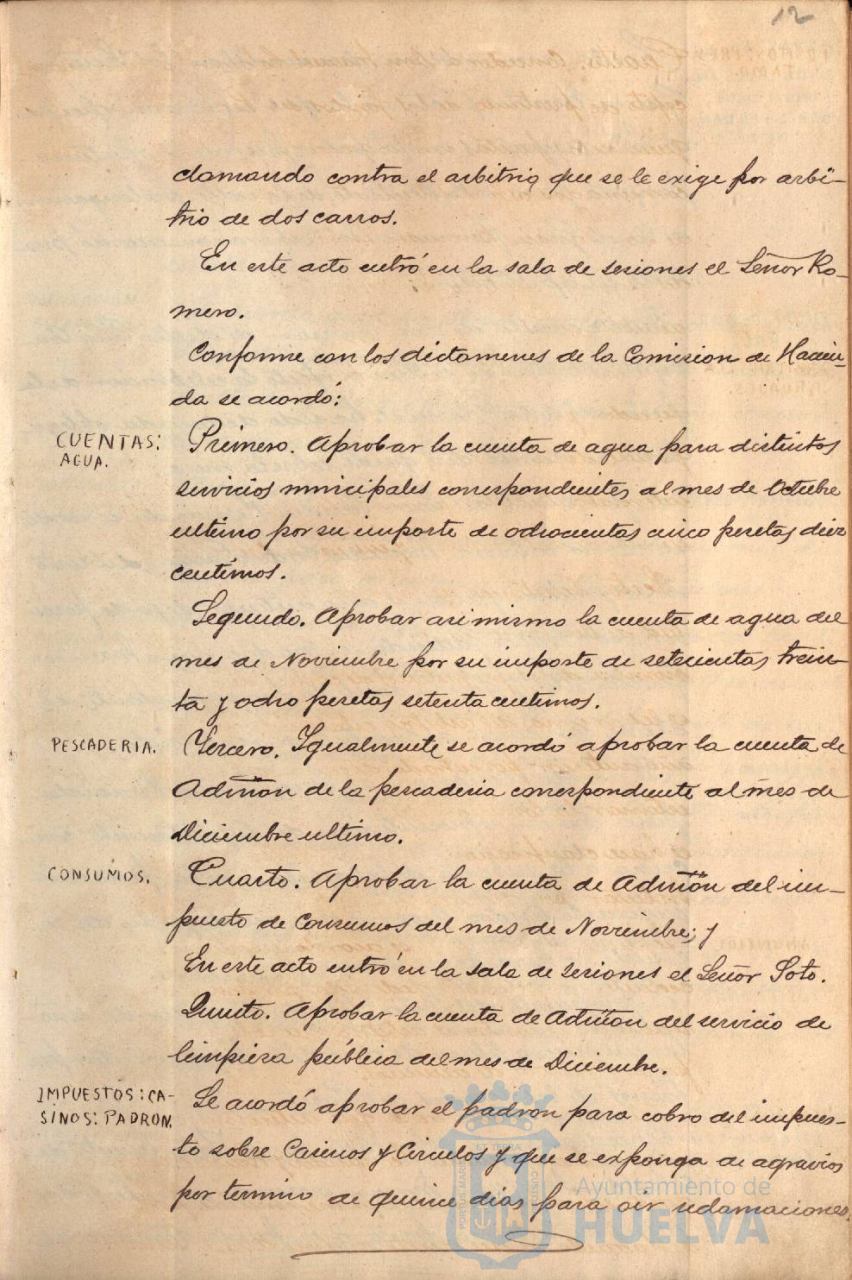 12
clamando contra el arbitrio que se le exige por arbi-
trio de dos carros.
En este acto entró en la sala de sesiones el Señor Ro-
mero.
Conforme con los dictamenes de la Comision de Hacien-
da se acordó:
CUENTAS:
AGUA.
Primero. Aprobar la cuenta de agua para distintos
servicios municipales correspondientes al mes de Octubre
ultimo por su importe de ochocientas cinco pesetas diez
centimos.
Segundo. Aprobar asi mismo la cuenta de agua del
mes de Noviembre por su importe de setecientas trein-
ta y ocho pesetas setenta centimos.
PESCADERIA.
Tercero. Igualmente se acordó aprobar la cuenta de
Admñon de la pescaderia correspondiente al mes de
Diciembre ultimo.
CONSUMOS.
Cuarto. Aprobar la cuenta de Admñon del im-
puesto de Consumos del mes de Noviembre; y
En este acto entró en la sala de sesiones el Señor Soto.
Quinto. Aprobar la cuenta de Admñon del servicio de
limpieza pública del mes de Diciembre.
IMPUESTOS: CA-
SINOS: PADRON.
Se acordó aprobar el padron para cobro del impues-
to sobre Casinos y Circulos y que se exponga de agravios
por termino de quince dias para oir reclamaciones.
Ayuntamiento de
HUELVA